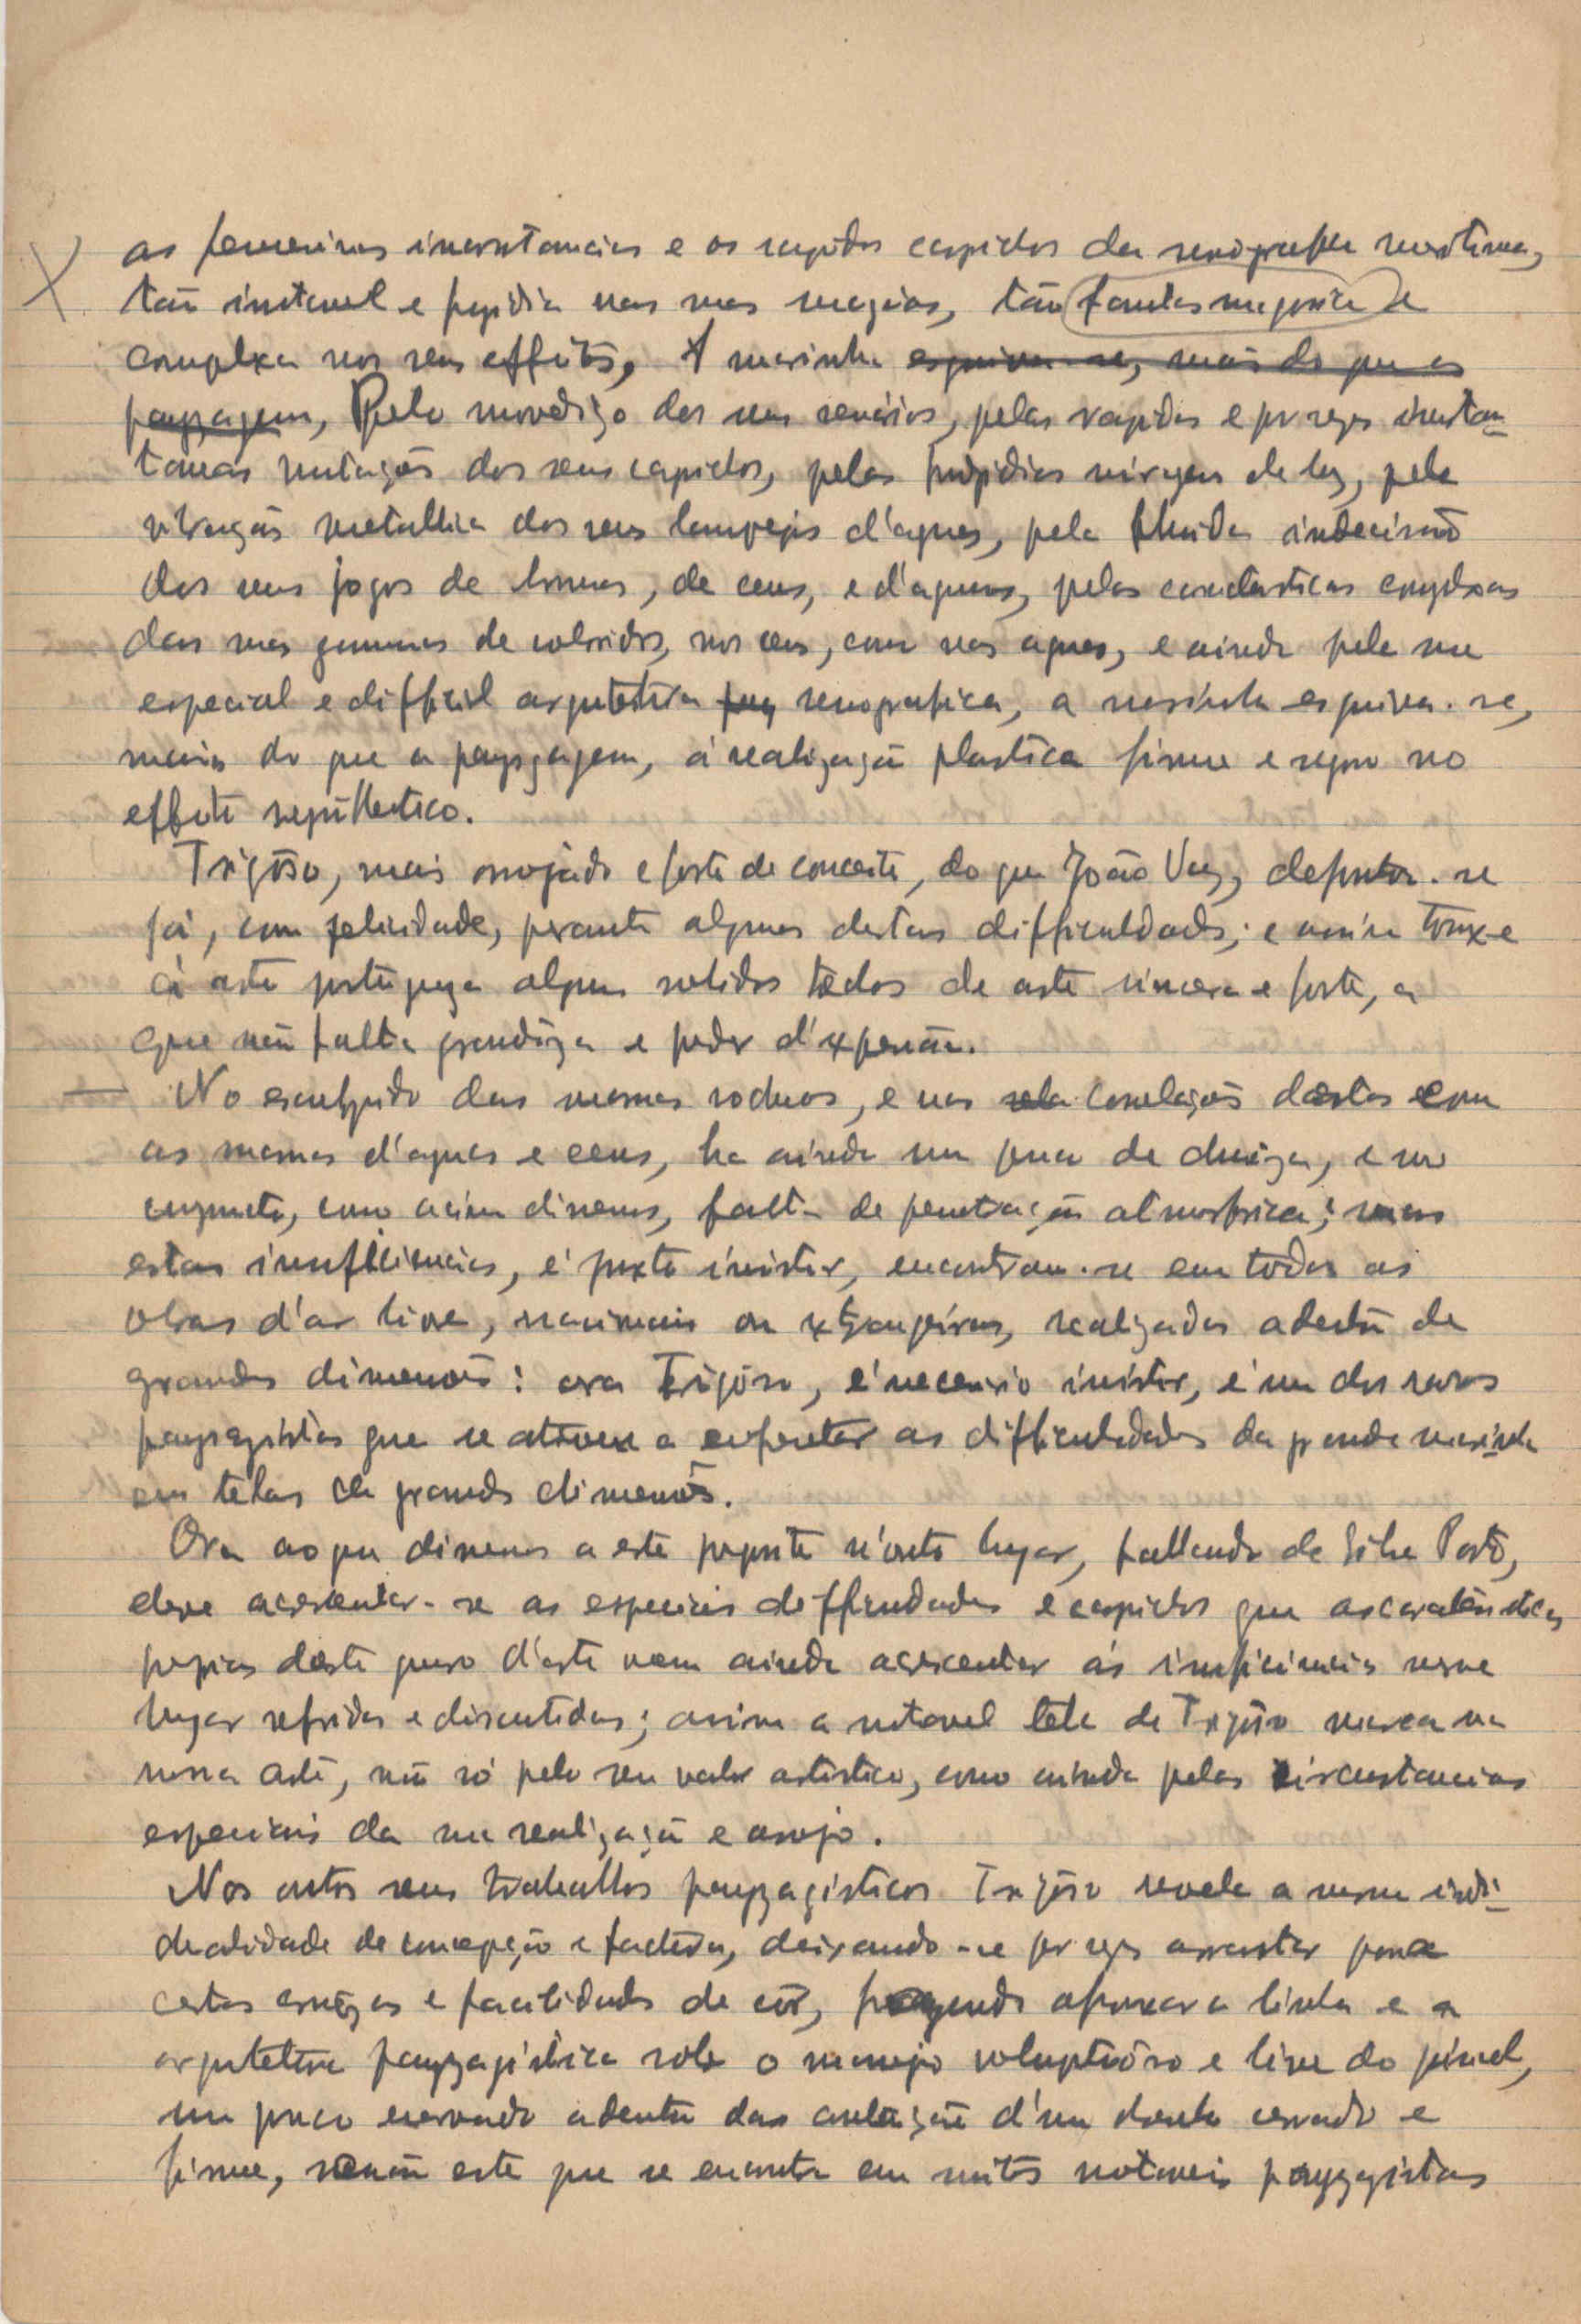 as femeninas inconstancias e os rapidos caprichos da scenographia maritima,
tão instavel e fugidia nas suas magias, tão fantasmagorica e
complexa nos seus effeitos, A marinha esquiva-se, mais do que as
paysagem, Pelo movediço dos seus scenarios, pelas rapidas e por vezes instan-
taneas mutações dos seus caprichos, pelas fugidias miragens de luz, pela
vibração metallica dos seus lampejos d'aguas, pela fluida indecisão
dos seus jogos de brumas, de ceus, e d'aguas, pelas caracteristicas complexas
das suas gammas de coloridos, nos ceus, como nas aguas, e ainda pela sua
especial e difficil arquitetura scenografica, a marinha esquiva-se,
mais do que a payzagem, á realização plastica firme e segura no
effeito
Trigôso, mais arrojado e forte de conceito, do que João Vaz, defronta-se
já, com felicidade, perante algumas destas difficuldades; e assim trouxe
á arte portugueza alguns solidos trechos de arte sincera e forte, a
que não falta grandêza e poder d'expressão.
— No esculpido das mesmas rochas, e nas correlações destas com
as massas d'aguas e ceus, ha ainda um pouco de durêza, e no
conjuncto, como acima dissemos, falta de penetração atmosferica; mas
estas insufficiencias, é justo insistir, encontram-se em todas as
obras d'ar livre, nacionaes ou extrangeiras, realizadas adentro de
grandes dimensões: ora Trigôso, é necessario insistir, é um dos raros
paysagistas que se atreve a enfrentar as difficuldades da grande marinha
em telas de grandes dimensões.
Ora ao que dissemos a este proposito n'outro lugar, fallando de Silva Porto,
deve acrescentar-se as especiaes difficuldades e caprichos que as caracteristicas
proprias deste genero d'arte vem ainda acrescentar ás insuficiencias nesse
lugar referidas e discutidas; assim a notavel tela de Trigôso marca na
nossa arte, não só pelo seu valor artistico, como ainda pelas circunstancias
especiaes da sua realização e arrojo.
Nos outros seus trabalhos payzagisticos Trigôso revela a mesma indi-
dualidade de concepção e factura, deixando-se por vezes arrastar para
certas cruêzas e facilidades de côr, fazendo afrouxar a linha e a
arquitetura payzagistica sob o manejo voluptuôso e livre do pincel,
um pouco enervado adentro das d'um desenho cerrado e
firme, senão este que se encontra em muitos notaveis payzagistas